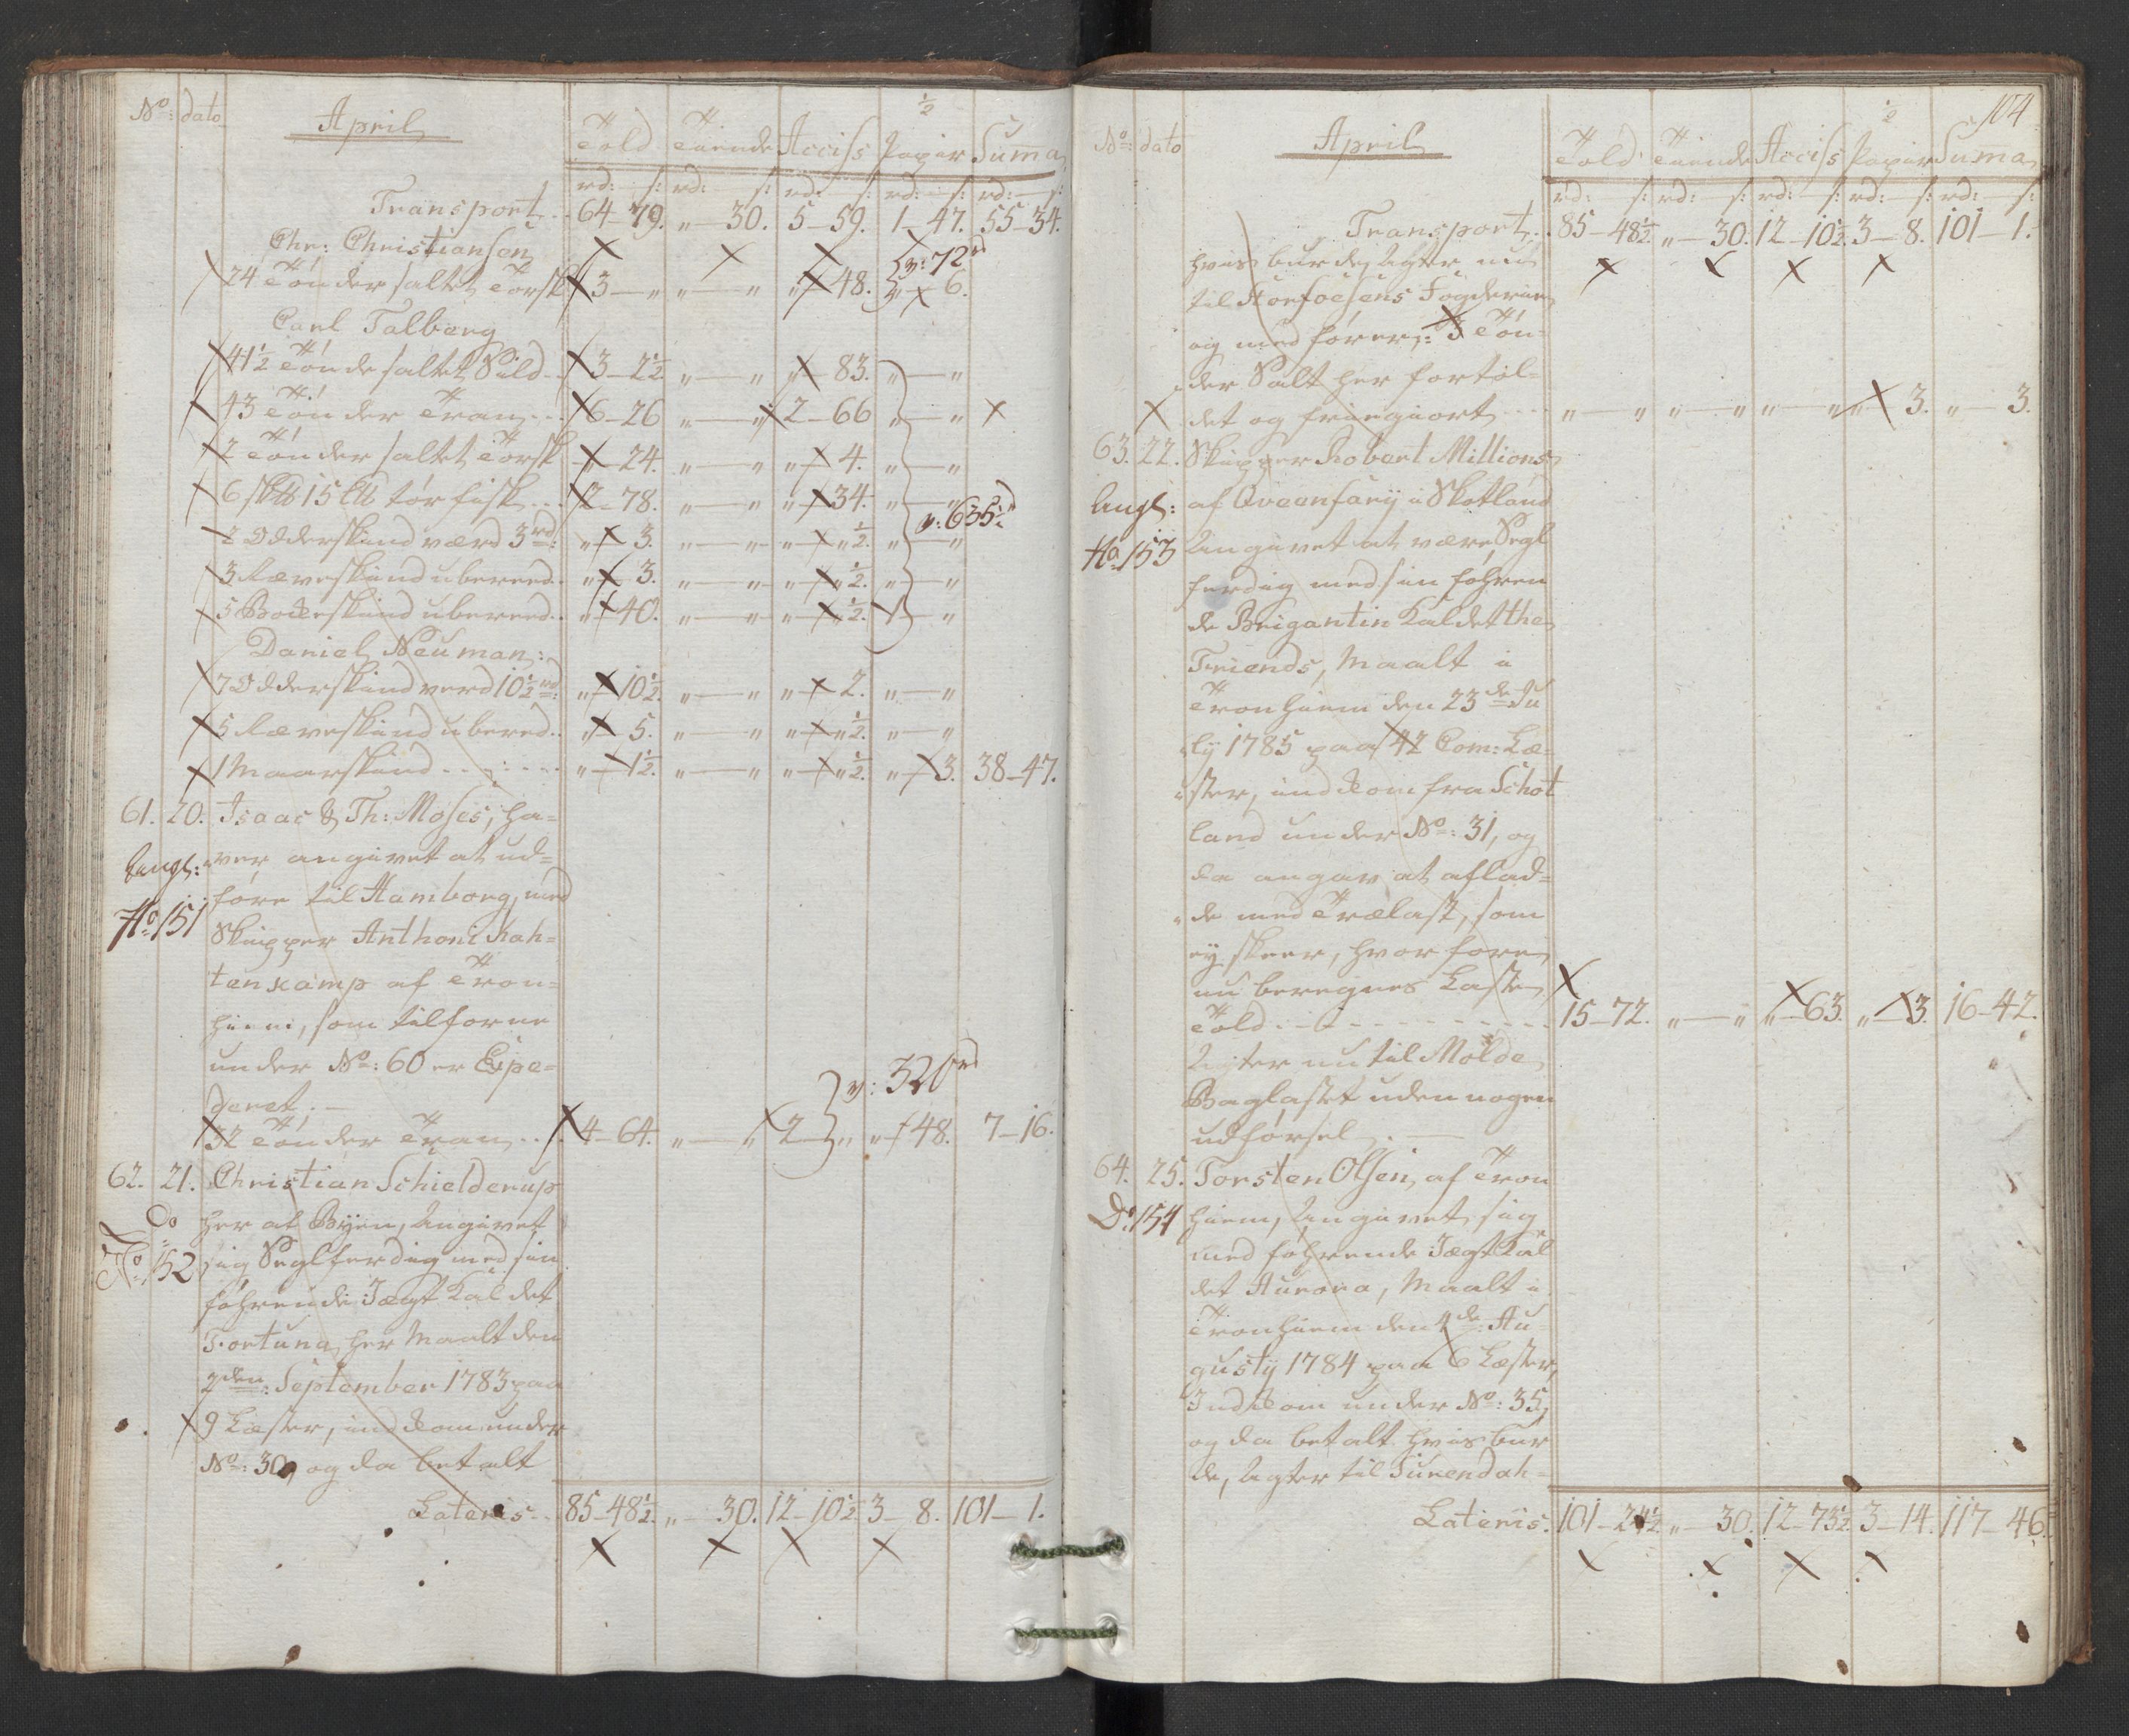 No: dato April Told Tiende Acciss Papir Suma
½
rd: s: rd: s: rd: s: rd: s: rd: s:
Transport .. 64-79. "-30. 5-59. 1-47. 55-34.
Chr: Christianson v: 72rd
24 Tönder saltet Torsk 3-" "-" "-48. "-6.
Carl Talberg
41½ Tönde saltet Sild .. 3-2½. "-" "-83. "-"
43 Tönder Tran ... 6-26 "-" 2-66 "-"
2 Tönder saltet Torsk "-24. "-" "-4. "-"
6 sk℔ 15 l℔ tör fisk ... 2-78. "-" "-34. "-"
v: 635½
2 Odderskind værd 3rd: "-3. "-" "-"½. "-"
3 Ræveskind ubereed.. "-3. "-" "-"½. "-"
5 Bockeskind ubereed.. "-40. "-" "-"½. "-"
Daniel Neuman:
7 Odderskind verd 10½rd: "-10½. "-" "-2. "-"
5 Ræveskind ubered.. "-5. "-" "-"½. "-"
1 Maarskind ...... "-1½. "-" "-"½. "-3. 38-47.
61. 20. Isaac & Th: Moses, ha=
Angl: ver angivet at ud=
före til Hamborg, med
No 151
Skipper Anthoni Kah=
tenkamp af Tron=
hiem, som tilforne
under No: 60 er Expe=
deret. —
v: 320rd
32 Tönder Tran ... 4-64. "-" 2-" "-48. 7-16.
62. 21. Christian Schielderup
Do her af Byen, Angivet
No 152 sig Seglferdig med sin
föhrende Jægt Kaldet
Fortuna, her Maalt den
2den: September 1783 paa
9 Læster, indkom under
No: 30, og da betalt
Lateris .. 85-48½. "-30. 12-10½ 3-8. 101-1.
104
No: dato April Told Tiende Acciss Papir Suma
rd: s: rd: s: rd: s: rd: s: rd: s:
Transport .. 85-48½. "-30. 12-10½. 3-8. 101-1.
hvis burde, Agter nu
til Fogderie,
og medförer: 3 Tön=
der Salt her fortol=
det og friegiort .... "-" "-" "-" "-3. "-3.
63. 22. Skipper Robert Millions
Angl: af Qveenfary i Skotland
No 153 Angivet at være Segl
ferdig med sin föhren
de Brigantin Kaldet the
Friends, Maalt i
Tronhiem den 23de Ju
ly 1785 paa 42 Com: Læ=
ster, indkom fra Schot
land under No: 31, og
da angav at aflad=
de med Trælast, som
ey skeer, hvorfore
nu beregnes Laste
Told .......... 15-72. "-" "-63. "-3. 16-42.
Agter nu til Molde
Baglastet uden nogen
udförsel. —
64. 25. Torsten Olsen, af Tron
Do 154 hiem, Angivet sig
med föhrende Jægt Kal
det Aurora, Maalt i
Tronhiem den 4de: Au
gusty 1784 paa 6 Læster,
Indkom under No: 35,
og da betalt hvis bur
de, Agter til Surendah=
Lateris. 101-24½ "-30. 12-73½. 3-14. 117-46.